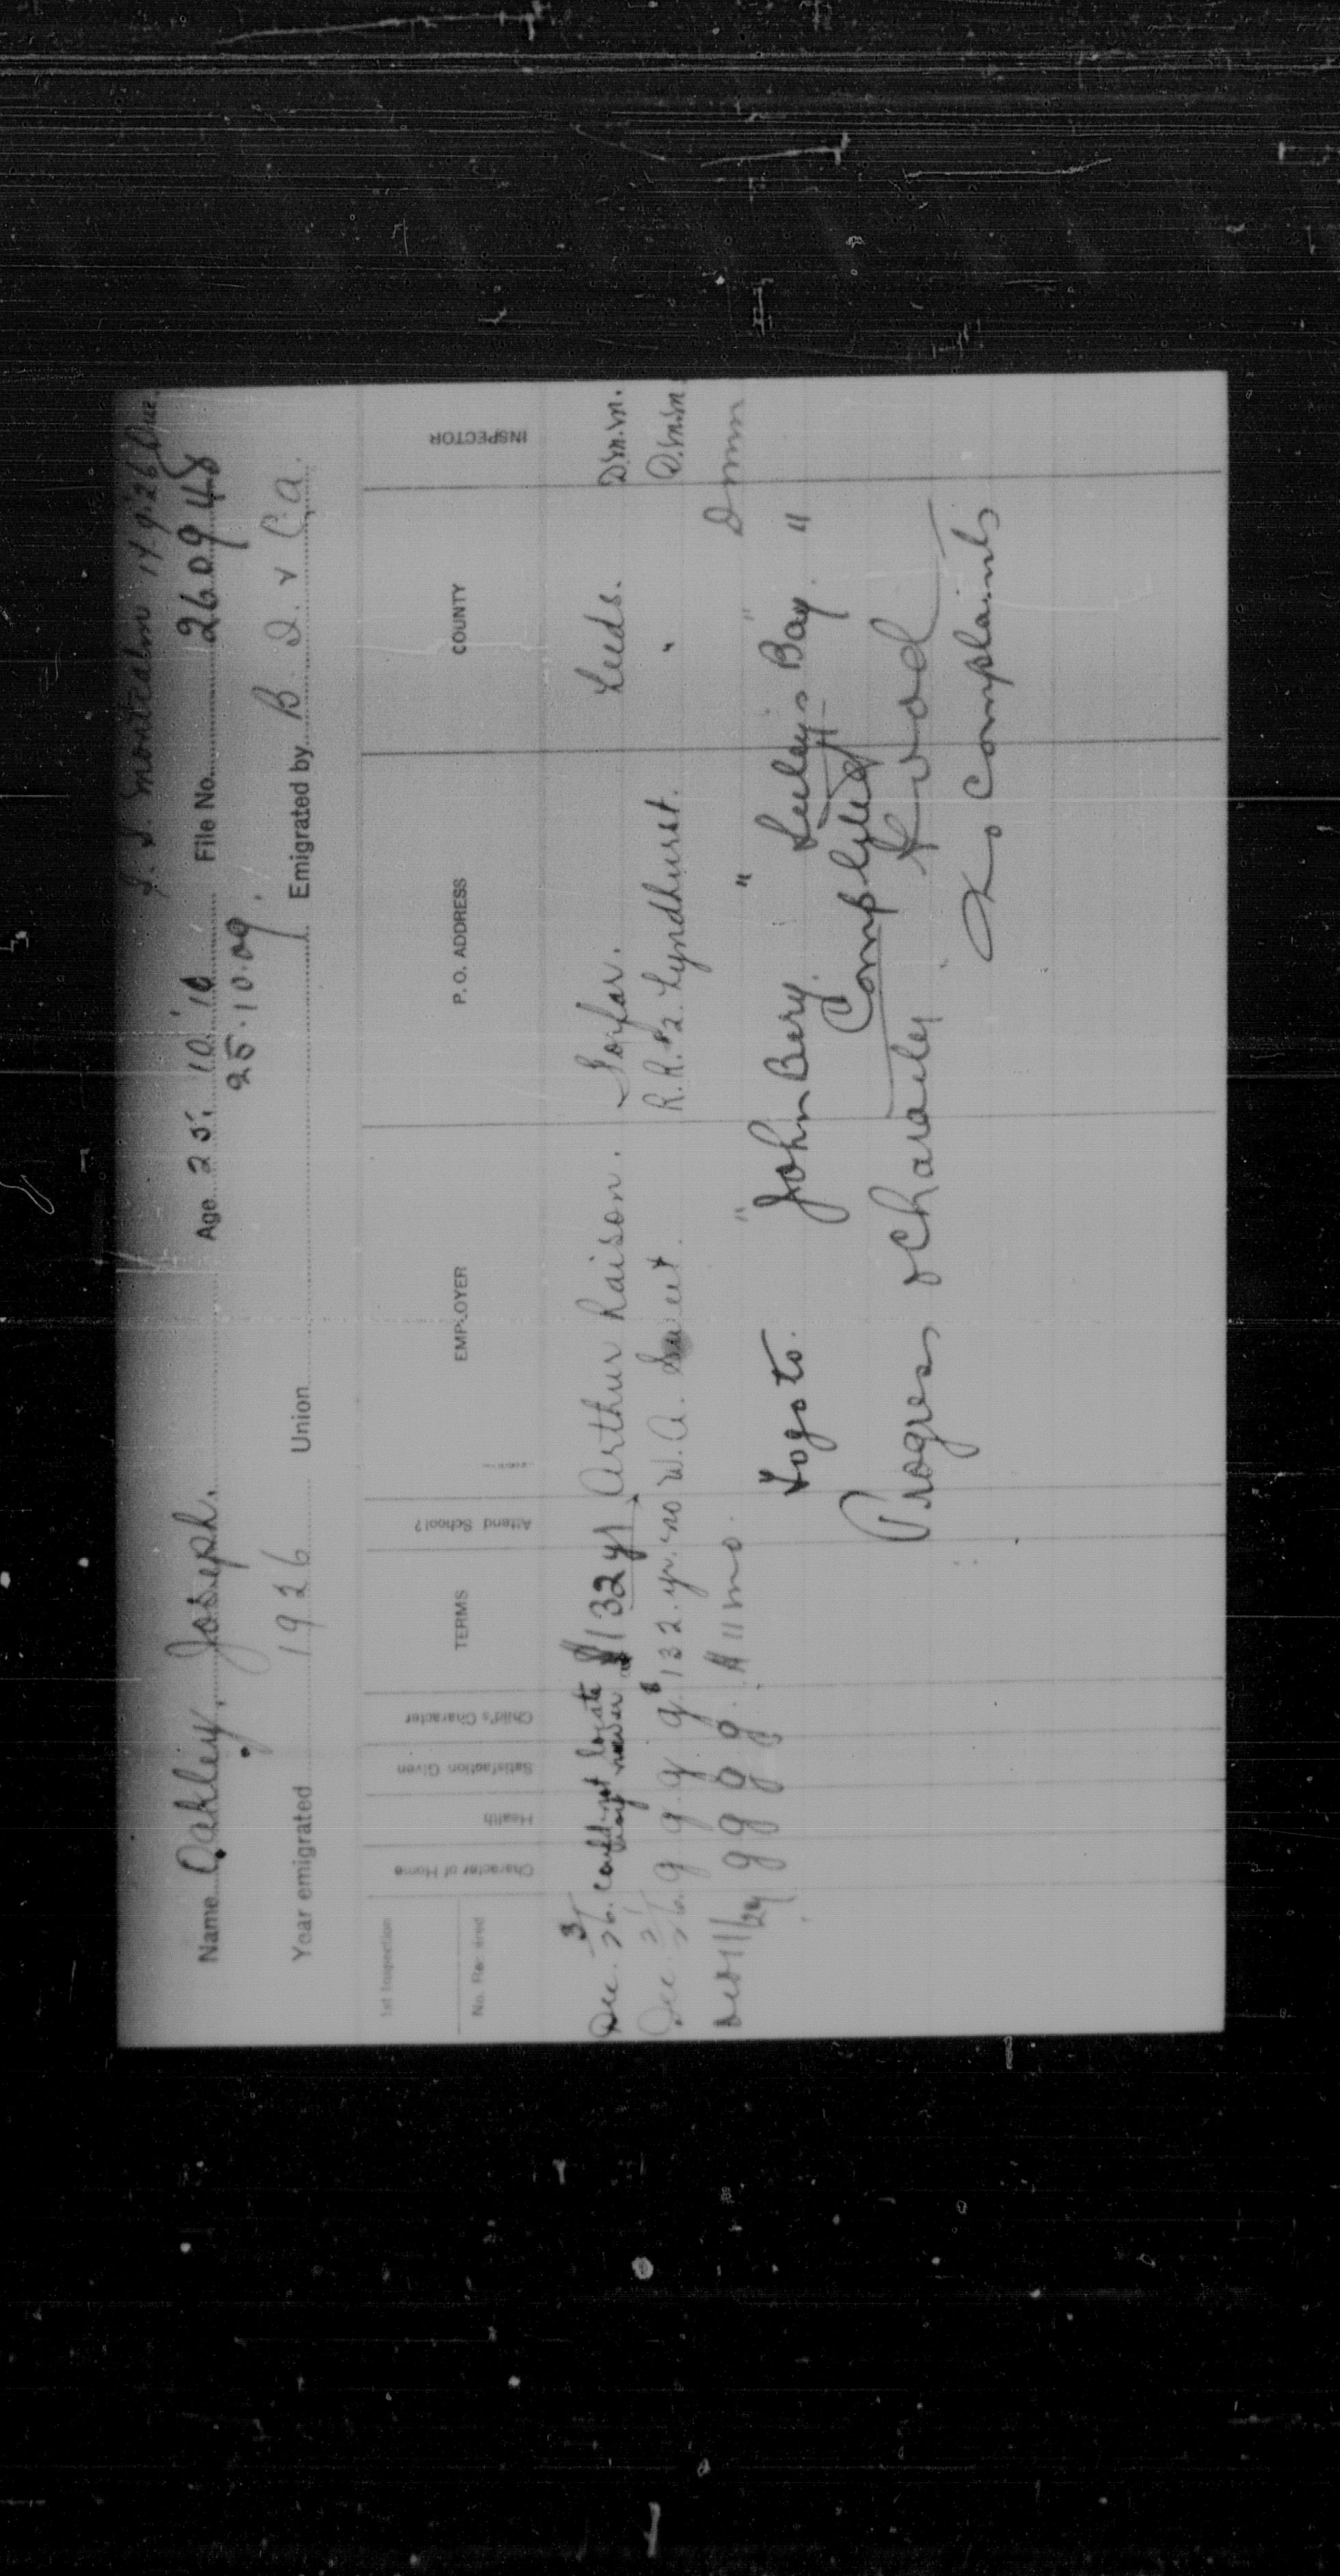 S. S. Montcalm 14.9.26 Que.
Name Oakley, Joseph. Age 25. 10. 10 File No. 260948
25.10.09.
Year emigrated 1926 Union Emigrated by B. I. & C. A.
1st Inspection
No. Received Character of Home Health Satisfaction Given Child's Character TERMS Attend School? EMPLOYER P. O. ADDRESS COUNTY INSPECTOR
Dec. 3/26. could not locate $132 yr Arthur Raison. Forfar. Leeds. D.M.M.
boy never
Dec. 26. g g g g $132. yr. no W. A. Sweet. R.R. #2. Lyndhurst. " D.M.M.
g g g g. $11 mo. " " " D M M
to go to. John Bery. Seeley's Bay. "
Completed
Progress & Character. Good
No Complaints